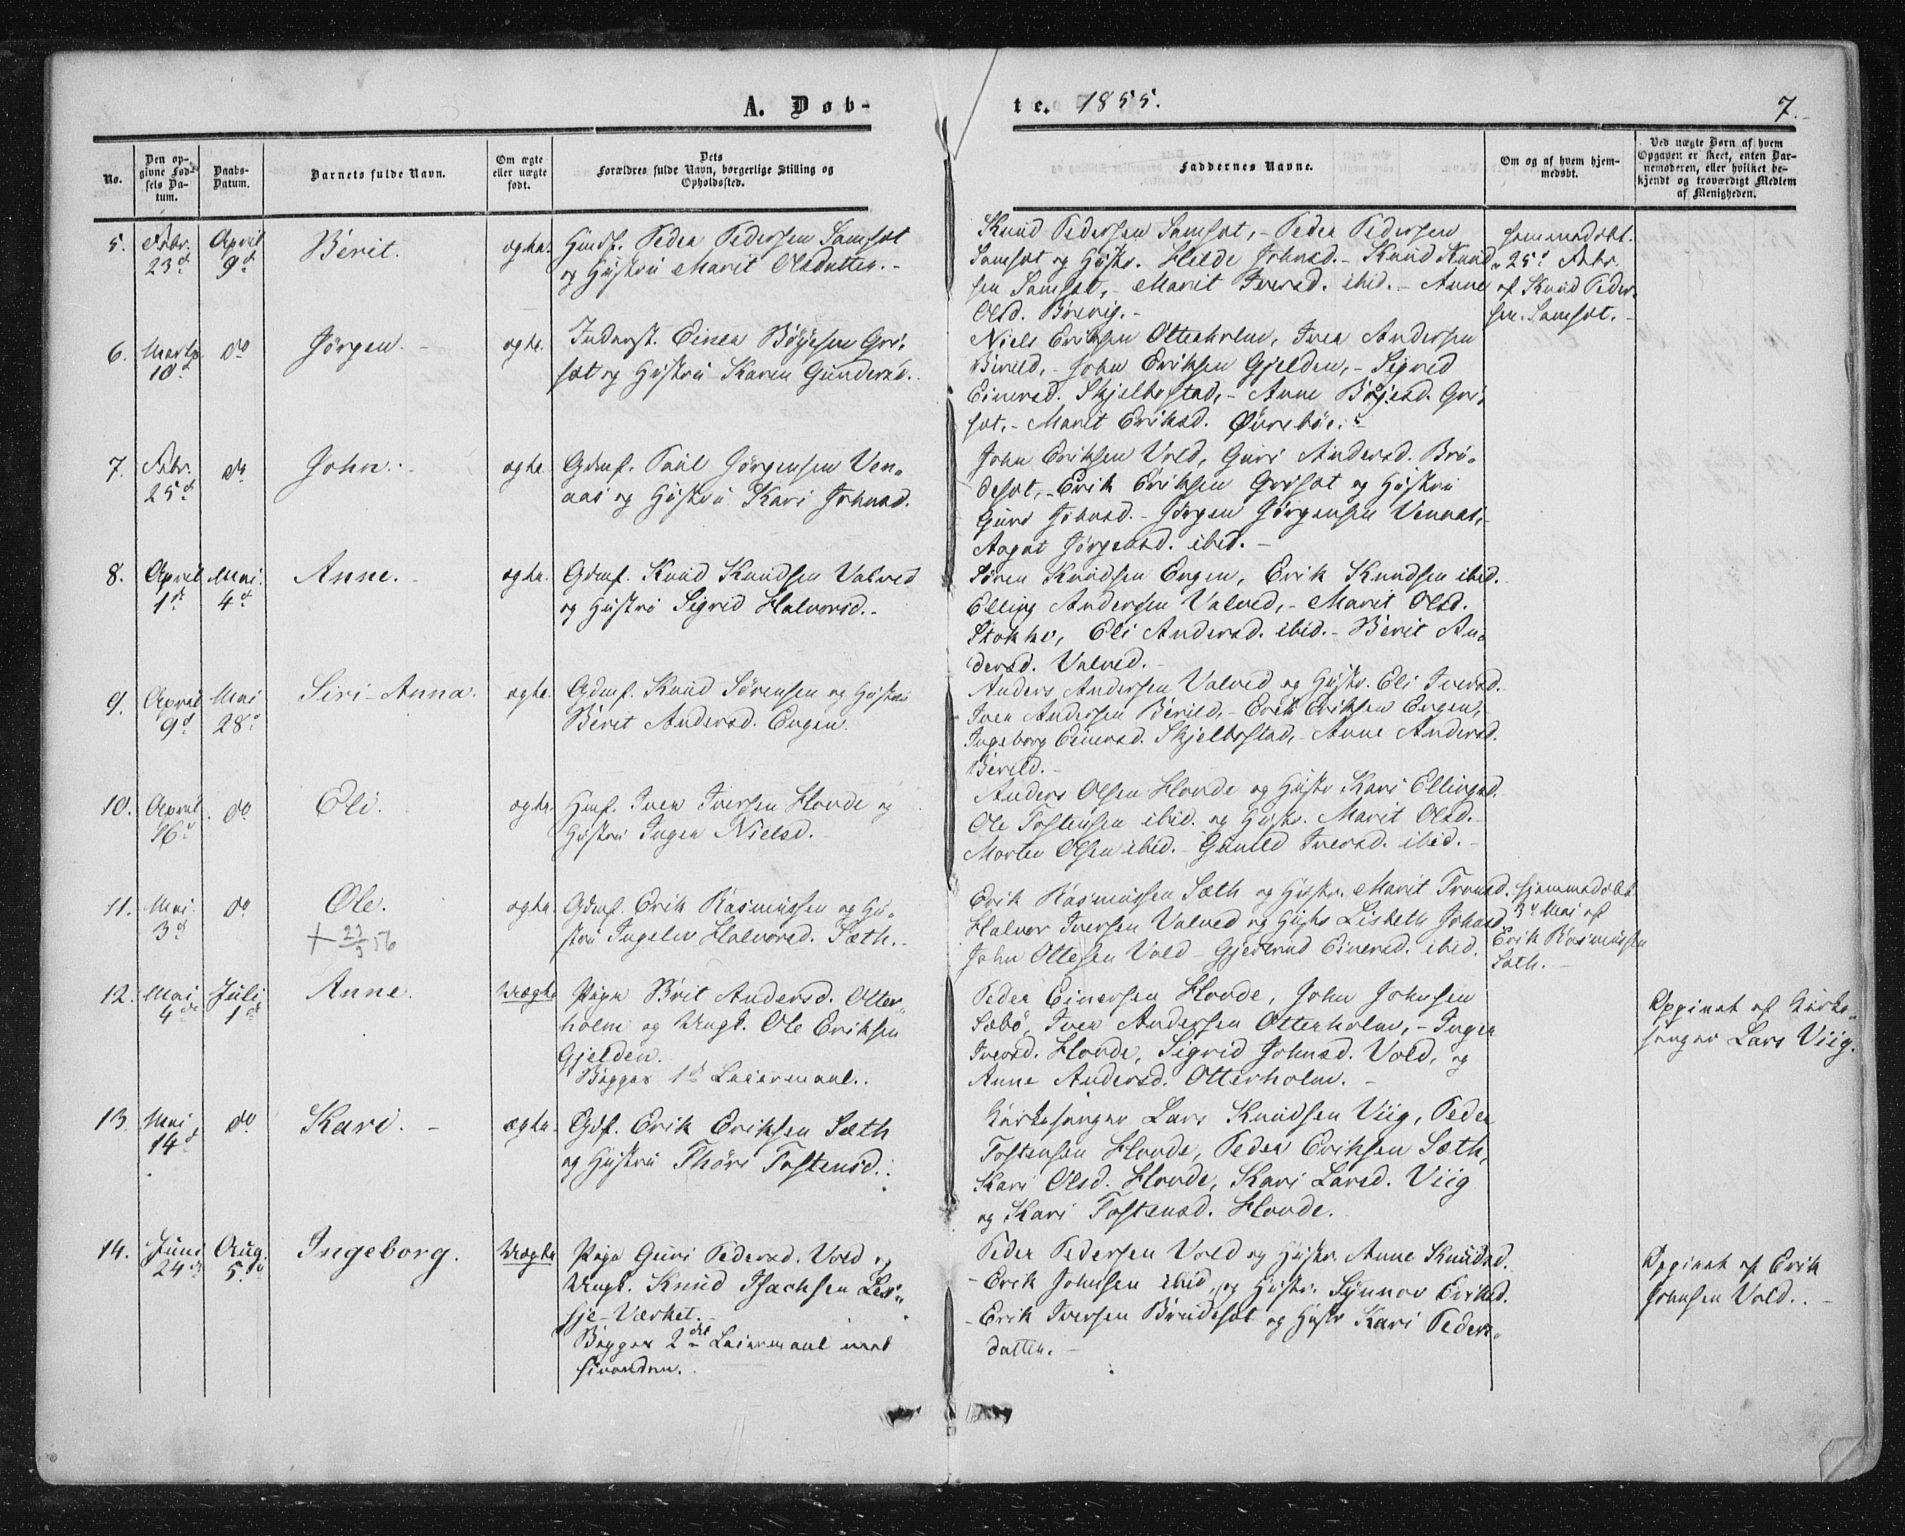 A. Døb-
te. 1855.
7.
No.
Den op-
givne Fød-
sels Da-
tum.
Daabs-
Datum.
Barnets fulde Navn.
Om ægte
eller uægte
født.
Dets
Forældres fulde Navn, borgerlige Stilling og
Opholdssted.
Faddernes Navne.
Om og af hvem hjem-
medøbt.
Ved uægte Børn af hvem
Opgaven er skeet, enten Bar-
nemoderen, eller hvilket be-
kjendt og troværdigt Medlem
af Menigheden.
5.
Febr.
23d
April
9d
Berit.
ægte.
Huusf. Peder Pedersen Samsæt
og Hustru Marit Olsdatter.-
Knud Pedersen Samsæt,- Peder Pedersen
Samsæt og Hustr. Hilde Johnsd.- Knud Knud
sen Samsæt,- Marit Iversd. ibid.- Anne
Olsd. Brevig.-
hjemmedøbt.
25d Febr.
af Knud Peder-
sen Samsæt.-
6.
Marts
10d
do
Jørgen.-
ægte.
Inderst. Einer Bøyesen Gri-
sæt og Hustru Karen Gundersd.
Niels Eriksen Otterholm, Iver Andersen
Berild,- John Eriksen Gjelden,- Sigrid
Einersd. Skjelbostad,- Anne Bøjesd. Gri-
sæt.- Marit Eriksd. Øvrebøe.-
7.
Febr.
25d
do
John.-
ægte.
Gdmf. Paul Jørgensen Ven-
aas og Hustru Kari Johnsd.
John Eriksen Vold, Guri Andersd. Bru-
desæt,- Erik Eriksen Grisæt og Hustru
Guri Johnsd.- Jørgen Jørgensen Venaas,
Aagot Jørgensd. ibid.-
8.
April
1d
Mai
4d
Anne.-
ægte.
Gdmf. Knud Knudsen Valved
og Hustru Sigrid Halvorsd.-
Søren Knudsen Engen, Erik Knudsen ibid.
Elling Andersen Valved,- Marit Olsd.
Stokke, Eli Andersd. ibid.- Berit An-
dersd. Valved.-
9.
April
9d
Mai
28d
Siri-Anna.
ægte.
Gdmf. Knud Sørensen og Hustru
Berit Andersd. Engen.
Anders Andersen Valved og Hustr. Eli Iversd.
Iver Andersen Berild,- Erik Eriksen Engen,
Ingeborg Einersd. Skjelbostad,- Anne Andersd.
Berild.-
10.
April
16d
do
Eli.
ægte.
Hmf. Iver Iversen Hovde og
Hustru Inger Nielsd.-
Anders Olsen Hovde og Hustr Kari Ellingsd.
Ole Tostensen ibid. og Hustr. Marit Olsd.-
Morten Olsen ibid.- Gunild Iversd. ibid.-
11.
Mai
3d
do
Ole.
+ 23/3 56
ægte.
Gdmf. Erik Rasmussen og Hu-
stru Ingeliv Halvorsd. Sæth.-
Erik Rasmussen Sæth og Hustr. Marit Trondsd.
Halvor Iversen Valved og Hustr Lisbeth Johnsd.
John Ottesen Vold- Gjertrud Einersd. ibid.
hjemmedøbt
3d Mai af
Erik Rasmussen
Sæth.-
12.
Mai
4de
Juli
1de
Anne.
Uægte
Pige Brit Andersd. Otter-
holm og Ungk. Ole Eriksen
Gjelden.
Begges 1ste Leiermaal.
Peder Einersen Hovde, John Johnsen
Sæbø, Iver Andersen Otterholm,- Inger
Iversd. Hovde, Sigrid Johnsd. Vold, og
Anne Andersd. Otterholm.-
Opgivet af Kirke-
sanger Lars Viig.
13.
Mai
14d
do
Kari.-
ægte.
Gdf. Erik Eriksen Sæth
og Hustru Thøri Tostensd.
Kirkesanger Lars Knudsen Viig, Peder
Tostensen Hovde, Peder Eriksen Sæth,
Kari Olsd. Hovde, Kari Larsd. Viig
og Kari Tostensd. Hovde.
14.
Juni
24de
Aug.
5te
Ingeborg.
Uægte
Pige Guri Pedersd. Vold og
Ungk. Knud Isachsen Les-
sje-Værket.-
Begges 2det Leiermaal med
hinanden.
Peder Pedersen Vold og Hustr. Anne Knudsd.
- Erik Johnsen ibid, og Hustr. Synnøv Eriksd.
- Erik Iversen Brudesæt og Hustr Kari Peders-
datter.-
Opgivet af Erik
Johnsen Vold.-